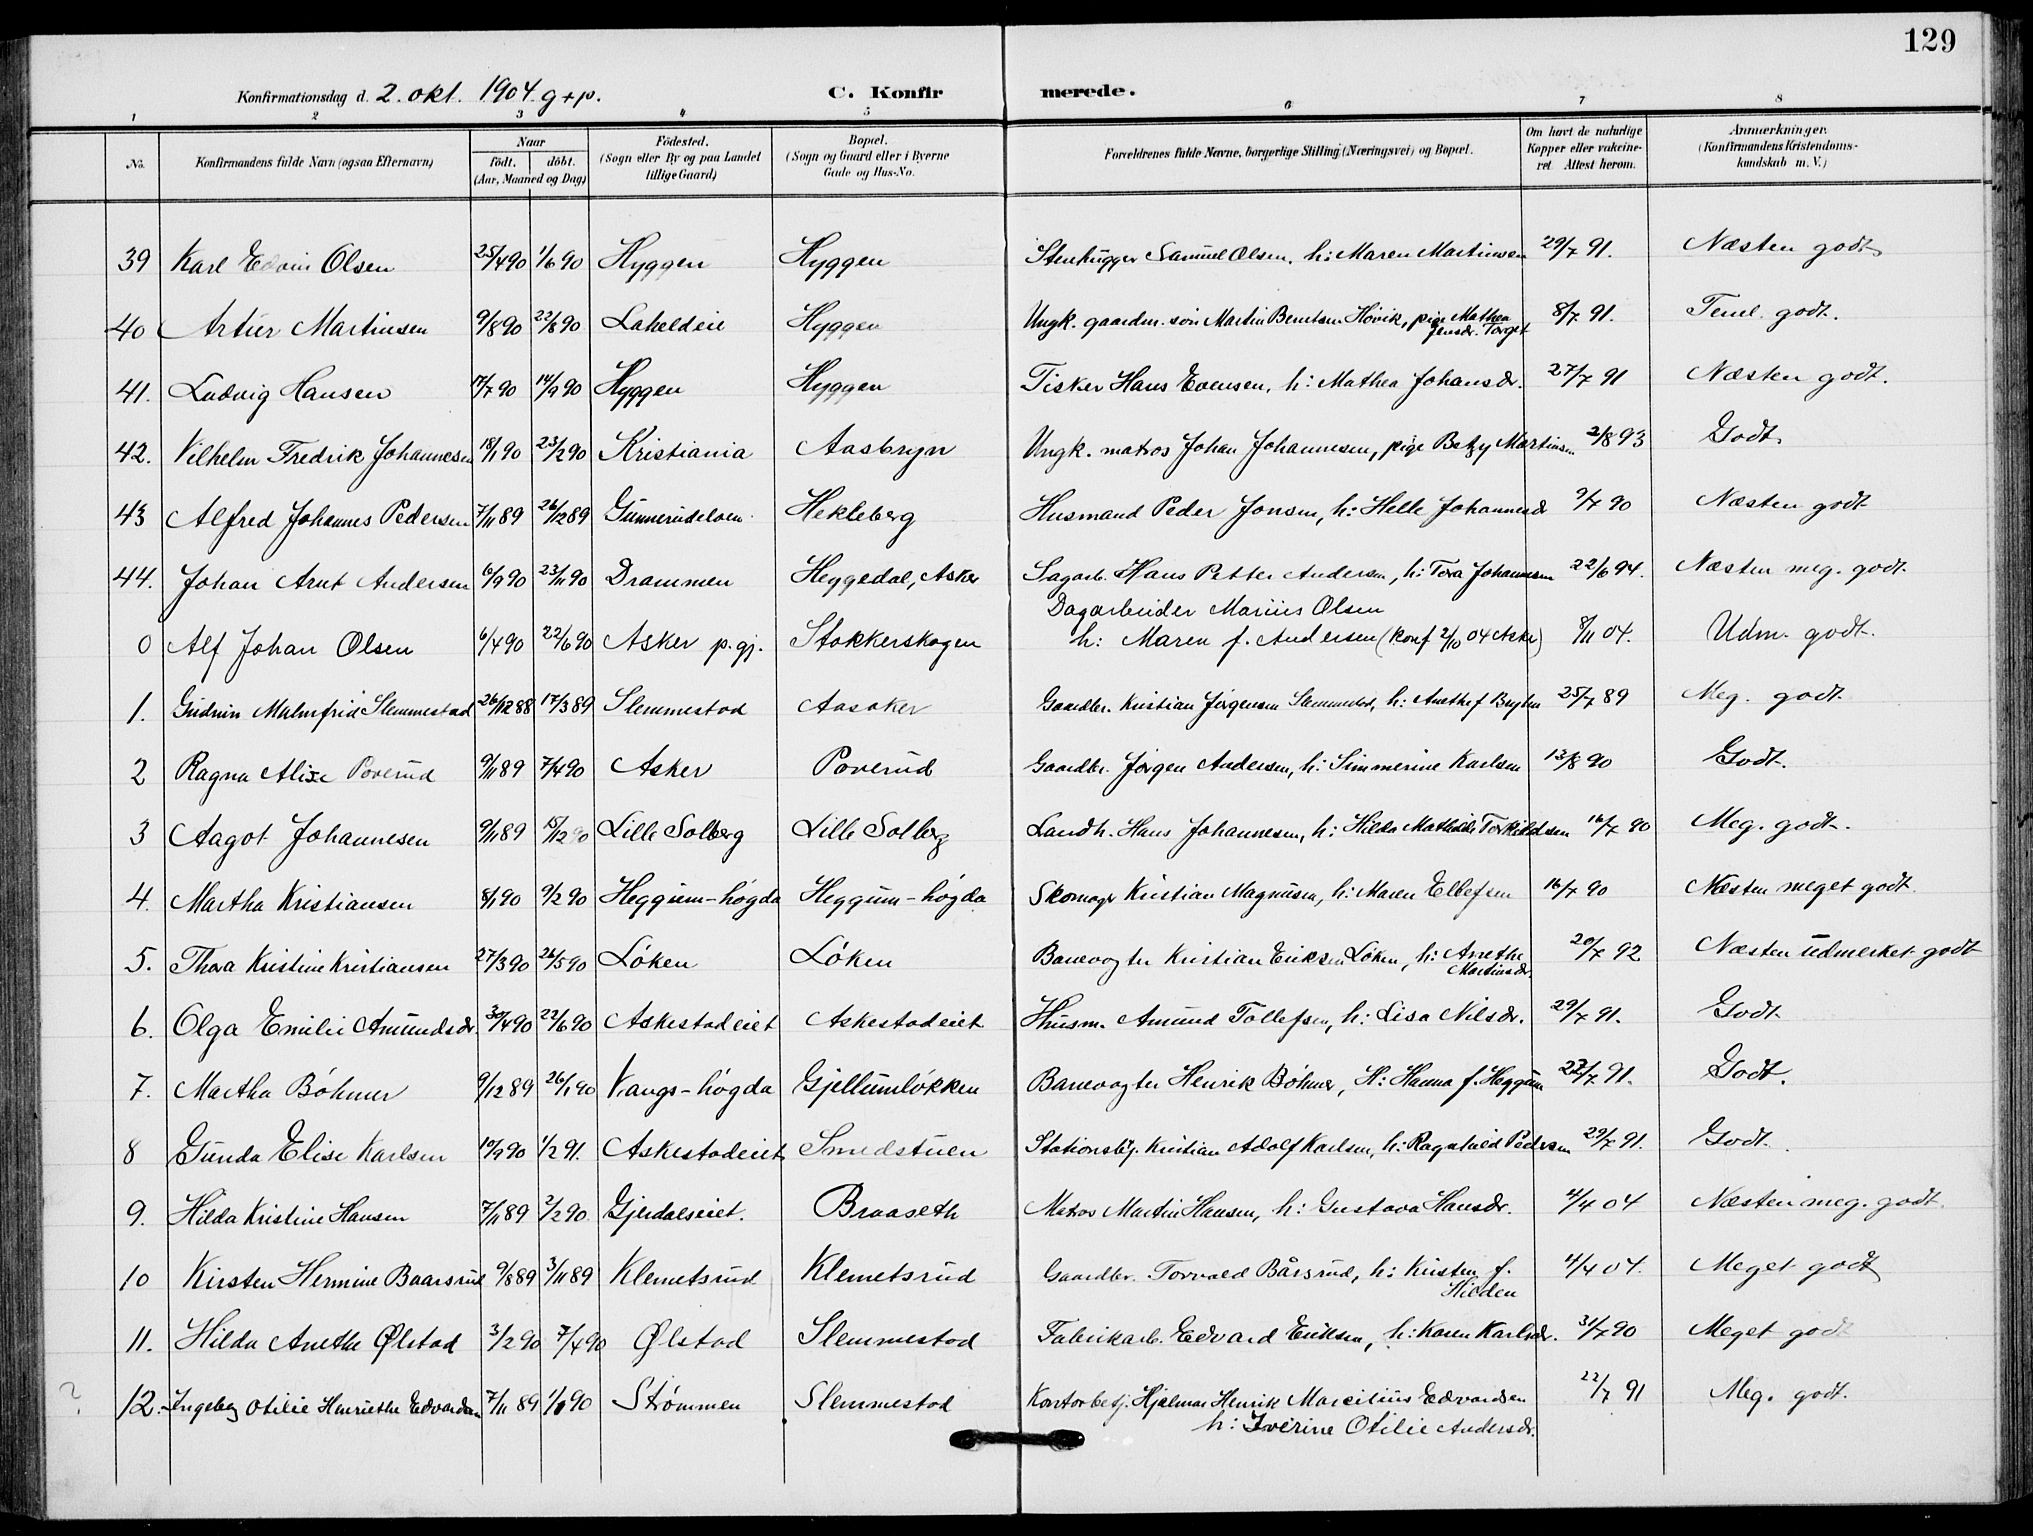 129
Konfirmationsdag d. 2. okt. 1904. g+p. C. Konfirmerede.
1 2 3 4 5 6 7 8
No. Konfirmandens fulde Navn (ogsaa Efternavn) Naar födt. döbt. (Aar, Maaned og Dag) Födested. (Sogn eller By og paa Landet tillige Gaard) Bopæl. (Sogn og Gaard eller i Byerne Gade og Hus-No. Forældrenes fulde Navne, borgerlige Stilling (Næringsvei) og Bopæl. Om havt de naturlige Kopper eller vakcineret. Attest herom. Anmærkninger. (Konfirmandens Kristendomskundskab m. V.)
39 Karl Edvin Olsen 25/4 90 1/6 90 Hyggen Hyggen Stenhugger Samuel Olsen, h: Maren Martinsen 29/7 91. Næsten godt
40 Artur Martinsen 9/8 90 22/8 90 Laheldeie Hyggen Ungk. gaardm. søn Martin Berntsen Høvik, pige Mathea Jensdr. Torget 8/7 91. Teml. godt.
41. Ludvig Hansen 17/7 90 14/9 90 Hyggen Hyggen Fisker Hans Evensen, h: Mathea Johansdr. 27/7 91 Næsten godt.
42. Vilhelm Fredrik Johannesen 18/1 90 23/2 90 Kristiania Aasbryn Ungk. matros Johan Johannesen, pige Betzy Martinsen 2/8 93 Godt.
43 Alfred Johannes Pedersen 7/11 89 26/12 89 Gunnerudelven Hekleberg Husmand Peder Jonsen, h: Helle Johannesdr 9/7 90 Næsten godt
44. Johan Arnt Andersen 6/9 90 23/11 90 Drammen Heggedal, Asker Sagarb. Hans Petter Andersen, h: Tora Johannesen 22/6 94. Næsten meg. godt.
0 Alf Johan Olsen 6/4 90 22/6 90 Asker p. gj. Stokkerskogen Dagarbeider Marius Olsen
h: Maren f. Andersen (konf 2/10 04 Asker) 8/11 04. Udm. godt.
1. Gudrun Malmfrid Slemmestad 26/12 88 17/3 89 Slemmestad Aasaker Gaardbr. Kristian Jørgensen Slemmestad, h: Anethe f Bøylen 25/7 89 Meg. godt
2 Ragna Alise Poverud 9/11 89 7/4 90 Asker Poverud Gaardbr. Jørgen Andersen, h: Simmerine Karlsen 13/8 90 Godt.
3 Aagot Johannesen 9/11 89 15/12 90 Lille Solberg Lille Solberg Landh. Hans Johannesen, h: Hilda Mathilde Torkildsen 16/7 90 Meg. godt.
4. Martha Kristiansen 8/1 90 9/2 90 Heggum-høgda Heggum-høgda Skomagr Kristian Magnusen, h: Maren Ellefsen 16/7 90 Næsten meget godt.
5. Thora Kristine Kristiansen 27/3 90 26/5 90 Løken Løken Banevogter Kristian Eriksen Løken, h: Anethe Martinsdr. 20/7 92 Næsten udmerket godt
6. Olga Emilie Amundsdr. 30/4 90 22/6 90 Askestadeiet Askestadeiet Husm. Amund Tollefsen, h: Lisa Nilsdr. 29/7 91. Godt
7. Martha Bøhmer 9/12 89 26/1 90 Vangs-høgda Gjellumløkken Banevogter Henrik Bøhmer, H: Hanna f. Heggum 27/7 91. Godt.
8 Gunda Elise Karlsen 10/9 90 1/2 91. Askestadeiet Smedstuen Stationsbtj. Kristian Adolf Karlsen, h: Ragnhild Pedersen 29/7 91. Godt.
9. Hilda Kristine Hansen 7/11 89 2/2 90 Gjerdalseiet. Braaseth Matros Martin Hansen, h: Gustava Hansdr. 4/4 04 Næsten meg. godt.
10 Kirsten Hermine Baarsrud 9/8 89 3/11 89 Klemetsrud Klemetsrud Gaardbr. Torvald Bårsrud, h: Kirsten f. Hilden 4/4 04. Meget godt
11. Hilda Anethe Ølstad 3/2 90 7/4 90 Ølstad Slemmestad Fabrikarb. Edvard Eriksen, h: Karen Karlsdr. 31/7 90 Meget godt
? 12. Ingeborg Otilie Henriethe Edvardsen 7/11 89 1/1 90 Strømmen Slemmestad Kontorbetj. Hjalmar Henrik Marcilius Edvardsen
h: Iverine Otilie Andersdr. 22/7 91 Meg. godt.